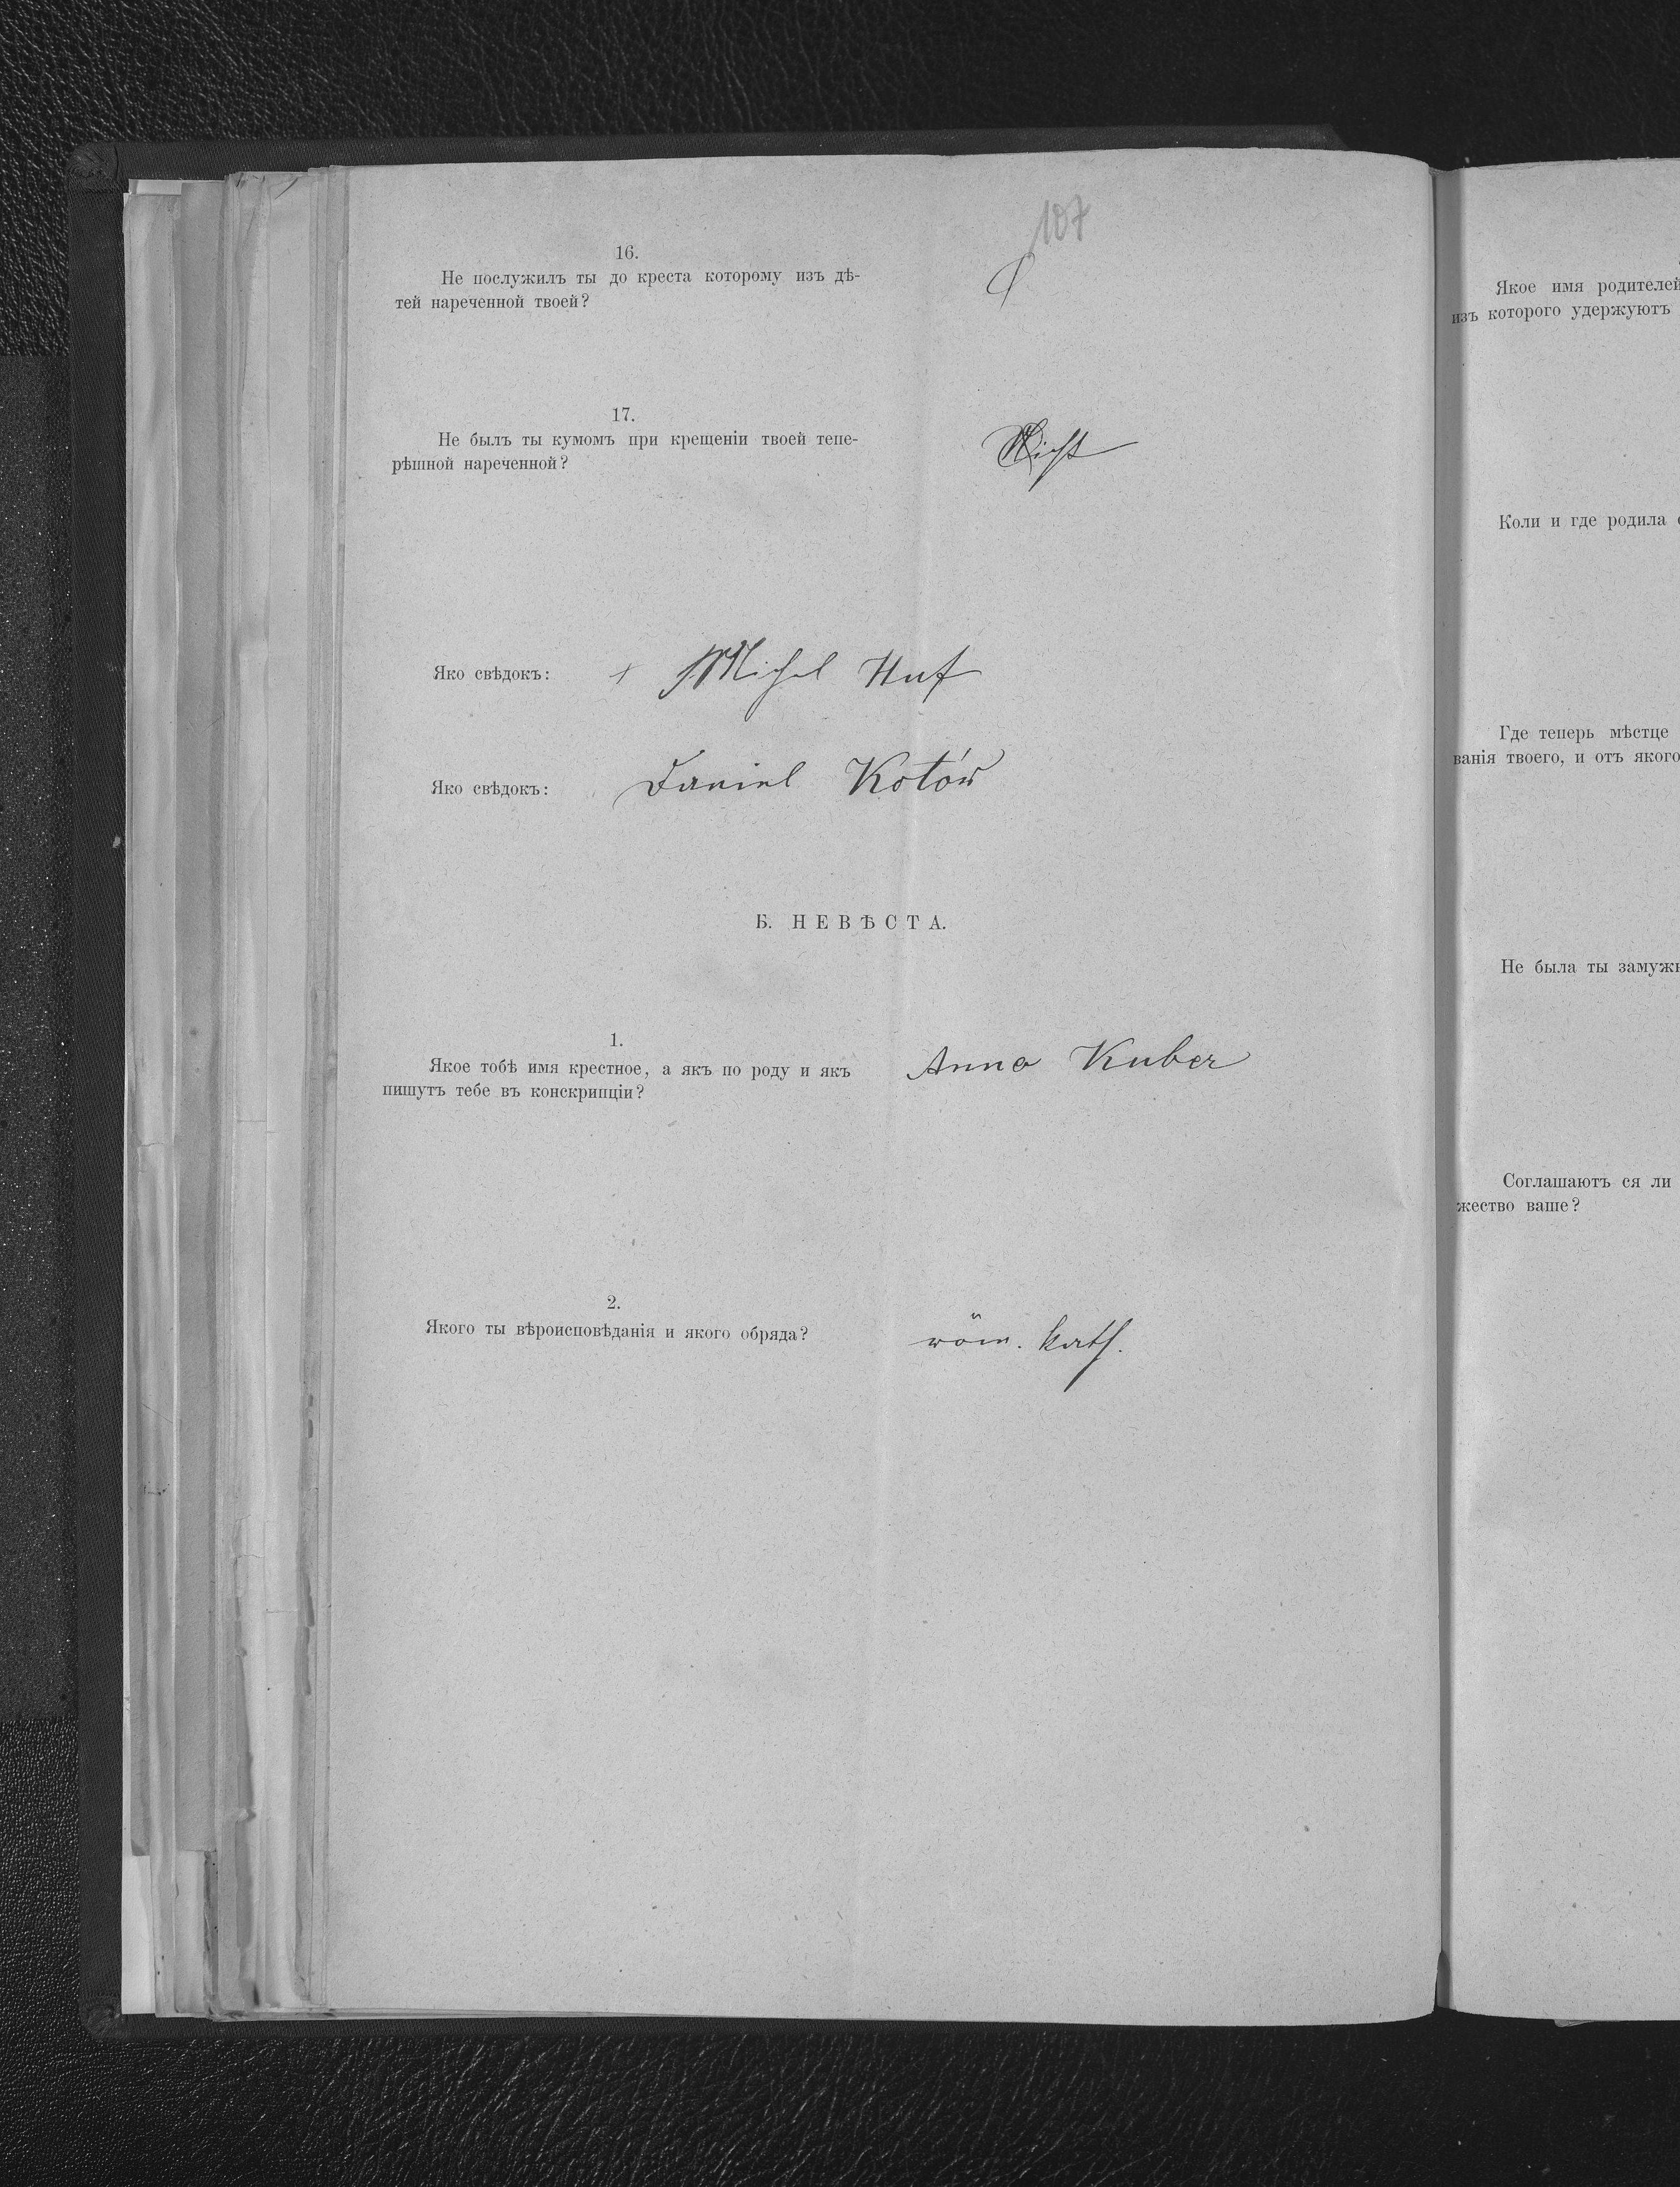 107
16.
Не послужилъ ты до креста которому изъ дѣ-
тей нареченной твоей?
17.
Не былъ ты кумомъ при крещеніи твоей тепе-
рѣшной нареченной?
Nicht
Яко свѣдокъ: + Michel Huf
Яко свѣдокъ: Daniel Kotów
Б. НЕВѢСТА.
1.
Якое тобѣ имя крестное, а якъ по роду и якъ
пишутъ тебе въ конскрипціи?
Anna Kuber
2.
Якого ты вѣроисповѣданія и якого обряда?
röm. kath.
Якое имя родителей
изъ которого удержуютъ
Коли и где родила
Где теперь мѣстце
ванія твоего, и отъ якого
Не была ты замуж
Соглашаютъ ся ли
жество ваше?